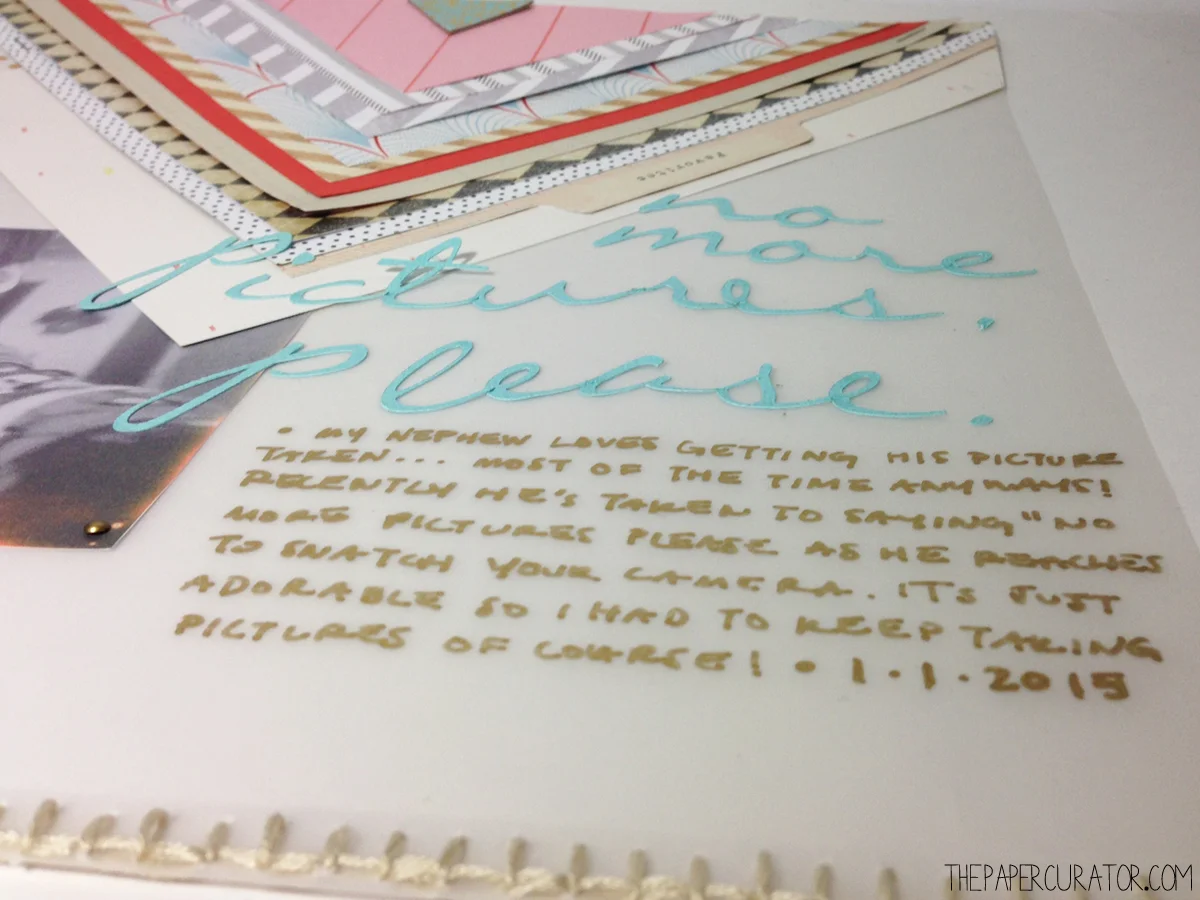 Favorites
no
more
pictures.
please.
• MY NEPHEW LOVES GETTING HIS PICTURE
TAKEN... MOST OF THE TIME ANYWAYS!
RECENTLY HE'S TAKEN TO SAYING "NO
MORE PICTURES PLEASE AS HE REACHES
TO SNATCH YOUR CAMERA. IT'S JUST
ADORABLE SO I HAD TO KEEP TAKING
PICTURES OF COURSE! • 1.1.2015
THEPAPERCURATOR.COM